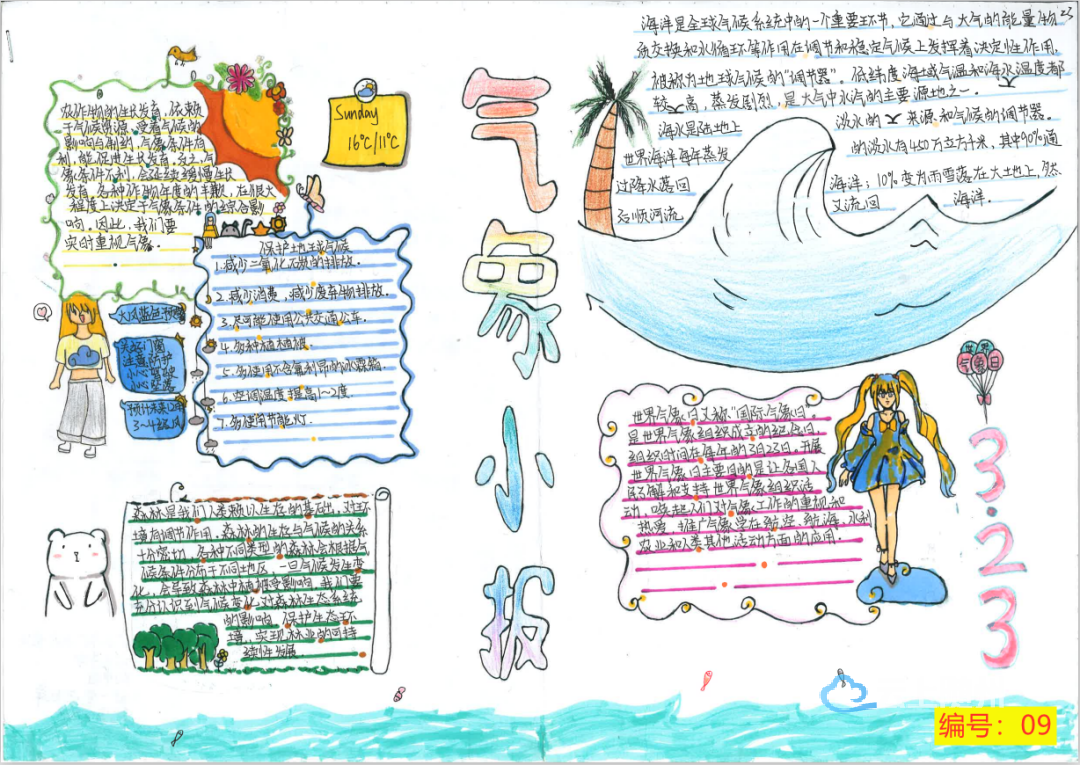 农作物的生长发育，依赖
于气候资源，受着气候的
影响与制约，气象条件有
利，能促进生长发育，反之，气
象条件不利，会延续缓慢生长
发育，各种作物的年度的丰歉，在很大
程度上决定于气象条件的综合影
响。因此，我们要
实时重视气象。
Sunday
16℃/11℃
保护地球气候
1.减少二氧化石炭的排放。
2.减少消费，减少废弃物排放。
3.尽可能使用公共交通公车。
4.多种植植被。
5.多使用不含氟利昂的冰霖箱
6.空调温度提高1~2度.
7.多使用节能灯.
大风蓝色预警
关好门窗
注意防护
小心驾驶
小心坠落
预计未来12小时
3~4级风
森林是我们人类赖以生存的基础，对环
境有调节作用。森林的生存与气候的关系
十分密切，各种不同类型的森林会根据气
候条件分布于不同土地区，一旦气候发生变
化，会导致森林中植被受影响，我们要
充分认识到气候变化对森林生态系统
的影响，保护生态环
境，实现林业的可持
续性发展
气象小报
23
海洋是全球气候系统中的一个重要环节，它通过与大气的能量物
质交换和水循环等作用在调节和稳定气候上发挥着决定性作用，
被称为地球气候的“调节器”。低纬度海域气温和海水温度都
较高，蒸发剧烈，是大气中水汽的主要源地之一。
海水是陆地上
淡水的 来源和气候的调节器。
世界海洋每年蒸发
的淡水有450万立方千米，其中90%通
过降水落回
海洋；10%变为雨雪落在大土地上，然
后顺河流
又流回
海洋.
世界
气象日
3.23
世界气象日又称“国际气象日”
是世界气象组织成立的纪念日，
组织时间在每年的3月23日。开展
世界气象日主要目的是让各国人
民了解和支持世界气象组织活
动，唤起人们对气象工作的重视和
热爱，推广气象学在航空、航海、水利
农业和人类其他活动方面的应用.
编号：09